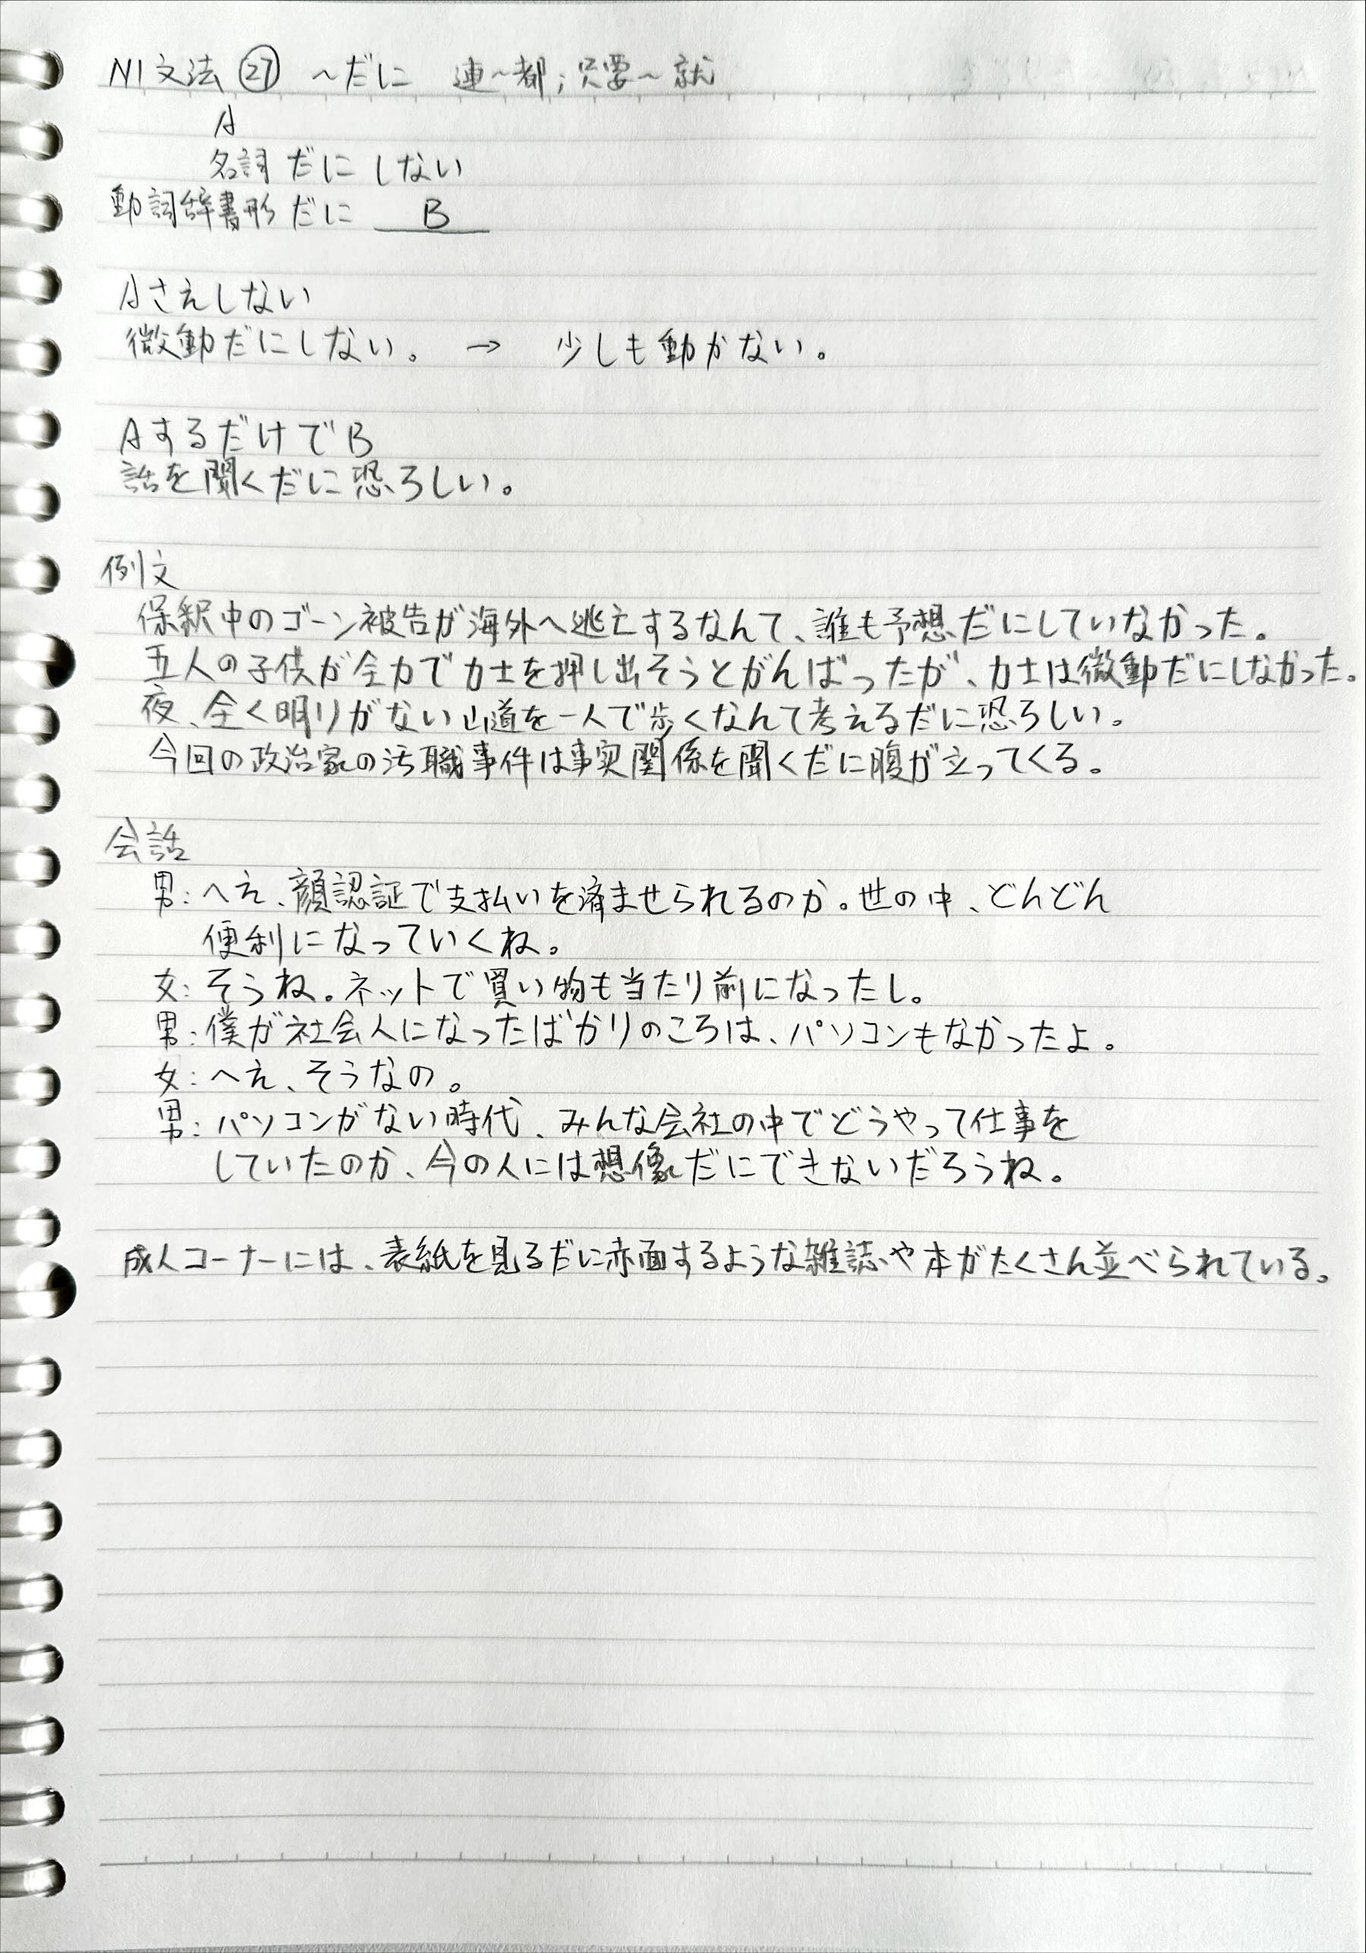 N1文法 ㉗ 〜だに 連〜都；只要〜就
A
名詞 だに しない
動詞辞書形 だに B
Aさえしない
微動だにしない。 → 少しも動かない。
AするだけでB
話を聞くだに恐ろしい。
例文
保釈中のゴーン被告が海外へ逃亡するなんて、誰も予想だにしていなかった。
五人の子供が全力で力士を押し出そうとがんばったが、力士は微動だにしなかった。
夜、全く明りがない山道を一人で歩くなんて考えるだに恐ろしい。
今回の政治家の汚職事件は事実関係を聞くだに腹が立ってくる。
会話
男：へえ、顔認証で支払いを済ませられるのか。世の中、どんどん
便利になっていくね。
女：そうね。ネットで買い物も当たり前になったし。
男：僕が社会人になったばかりのころは、パソコンもなかったよ。
女：へえ、そうなの。
男：パソコンがない時代、みんな会社の中でどうやって仕事を
していたのか、今の人には想像だにできないだろうね。
成人コーナーには、表紙を見るだに赤面するような雑誌や本がたくさん並べられている。